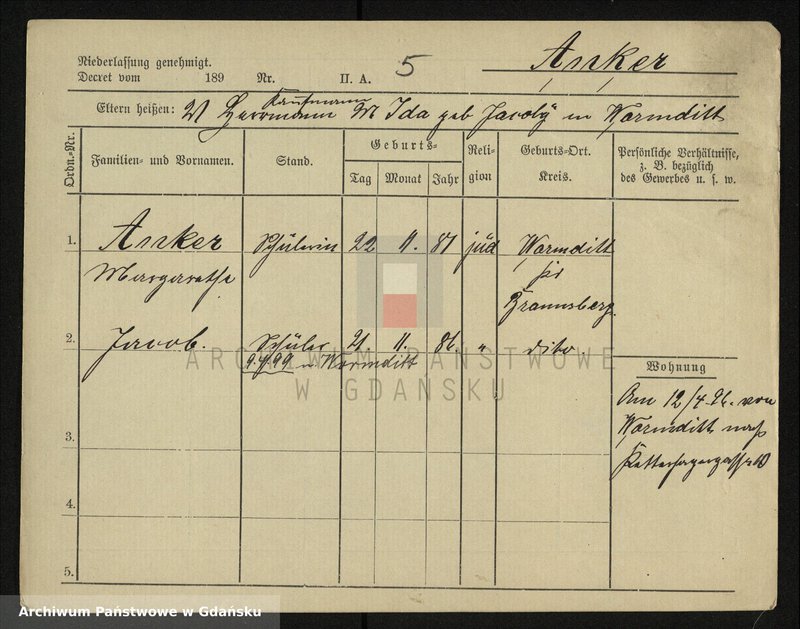 Niederlassung genehmigt.
Decret vom 189 Nr. II. A. 5 Anker
Kaufmann
Eltern heißen: V Herrmann M Ida geb Jacoby in Wormditt
Ordn.-Nr. Familien- und Vornamen. Stand. Geburts- Tag Monat Jahr Religion Geburts-Ort. Kreis. Persönliche Verhältnisse, z. B. bezüglich des Gewerbes u. s. w.
1. Anker Schülerin 22 11. 81 jüd Wormditt
Margarethe Kr
Braunsberg.
2. Jacob. Schüler 21 11. 86. " dito.
9.4/99 n Wormditt
Wohnung
Am 12/4.96. von
Wormditt nach
Ketterhagergasse
3.
4.
5.
ARCHIWUM PAŃSTWOWE
W GDAŃSKU
Archiwum Państwowe w Gdańsku